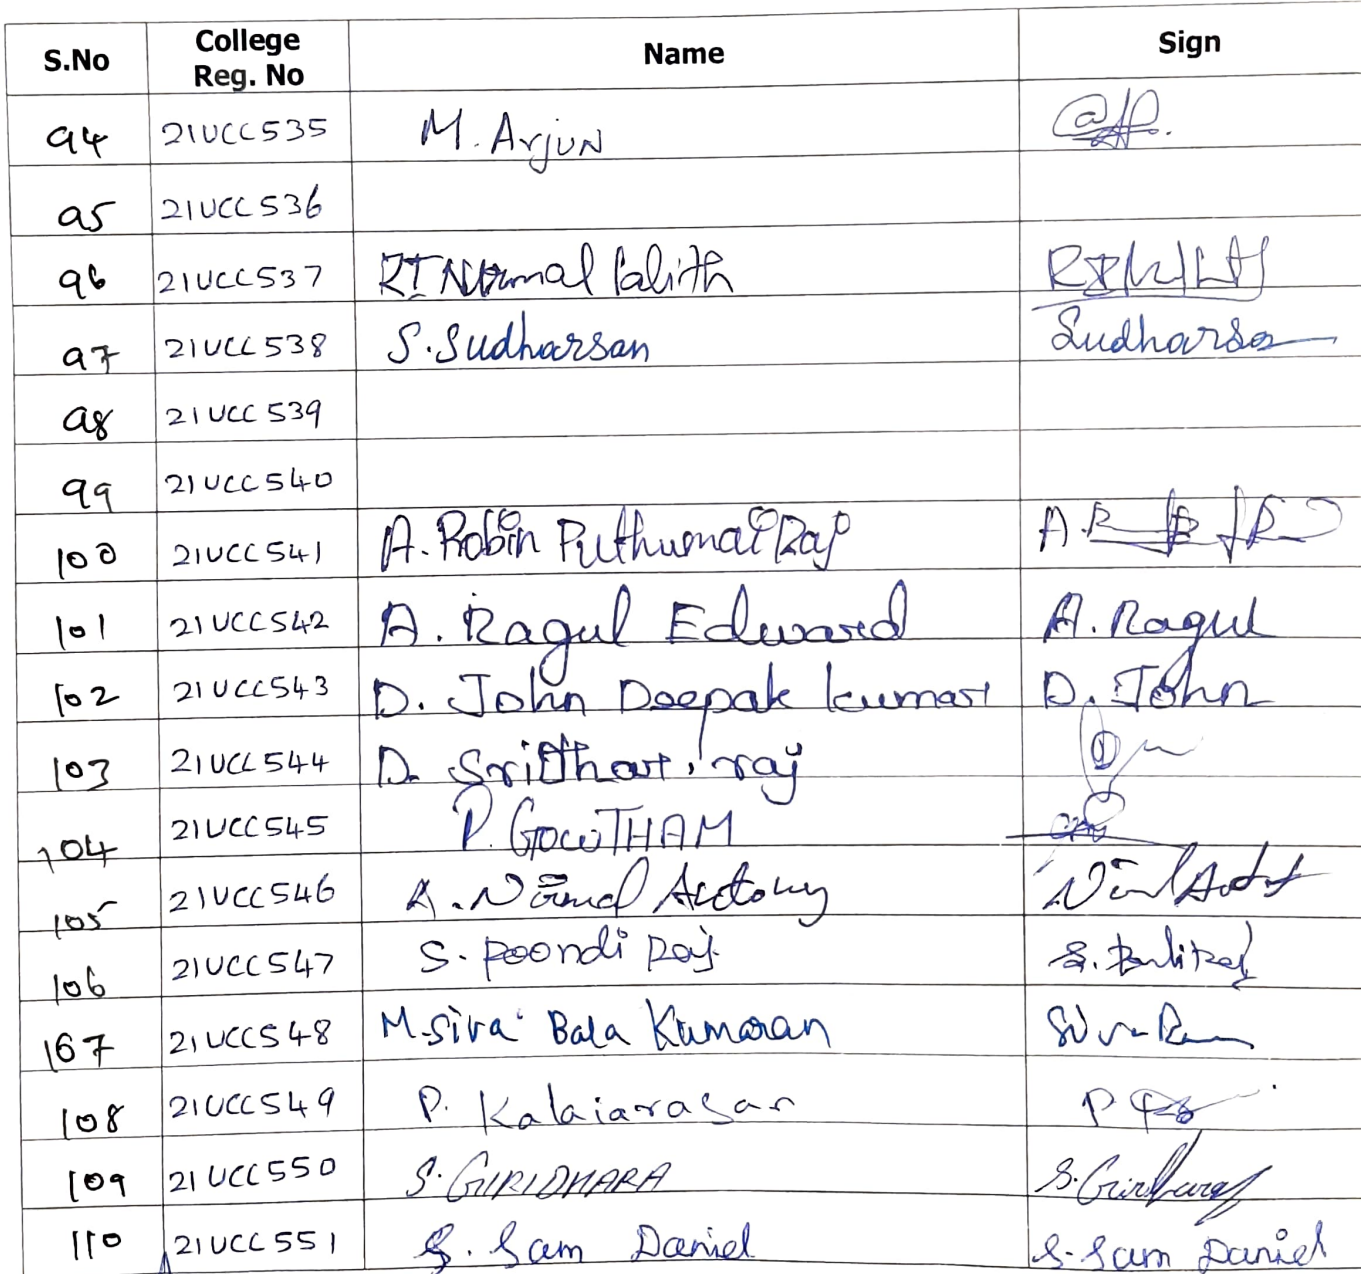 S.No College Reg. No Name Sign
94 21UCC535 M. Arjun
95 21UCC536
96 21UCC537 RT Nirmal Lalith
97 21UCC538 S. Sudharsan Sudharsan
98 21UCC539
99 21UCC540
100 21UCC541 A. Robin Puthumai Raj
101 21UCC542 A. Ragul Edward A. Ragul
102 21UCC543 D. John Deepak kumar D. John
103 21UCC544 D. Sridhar raj
104 21UCC545 P. GOWTHAM
105 21UCC546 A. Nirmal Antony
106 21UCC547 S. Poondi Raj
107 21UCC548 M. Siva Bala Kumaran
108 21UCC549 P. Kalaiarasan
109 21UCC550 S. GIRIDHARA
110 21UCC551 S. Sam Daniel S. Sam Daniel